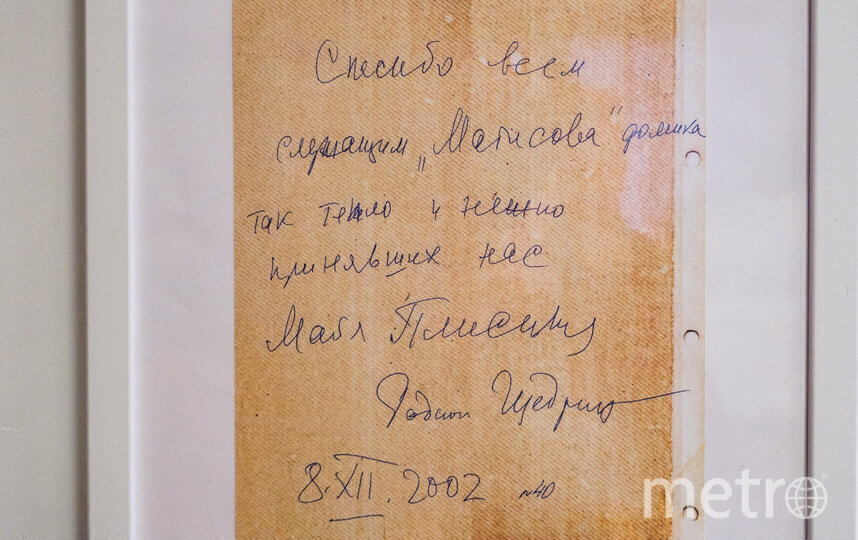 Спасибо всем
служащим „Матисова" домика
так тепло и нежно
принявших нас
Майя Плисецкая
Родион Щедрин
8.XII.2002 №40
metro